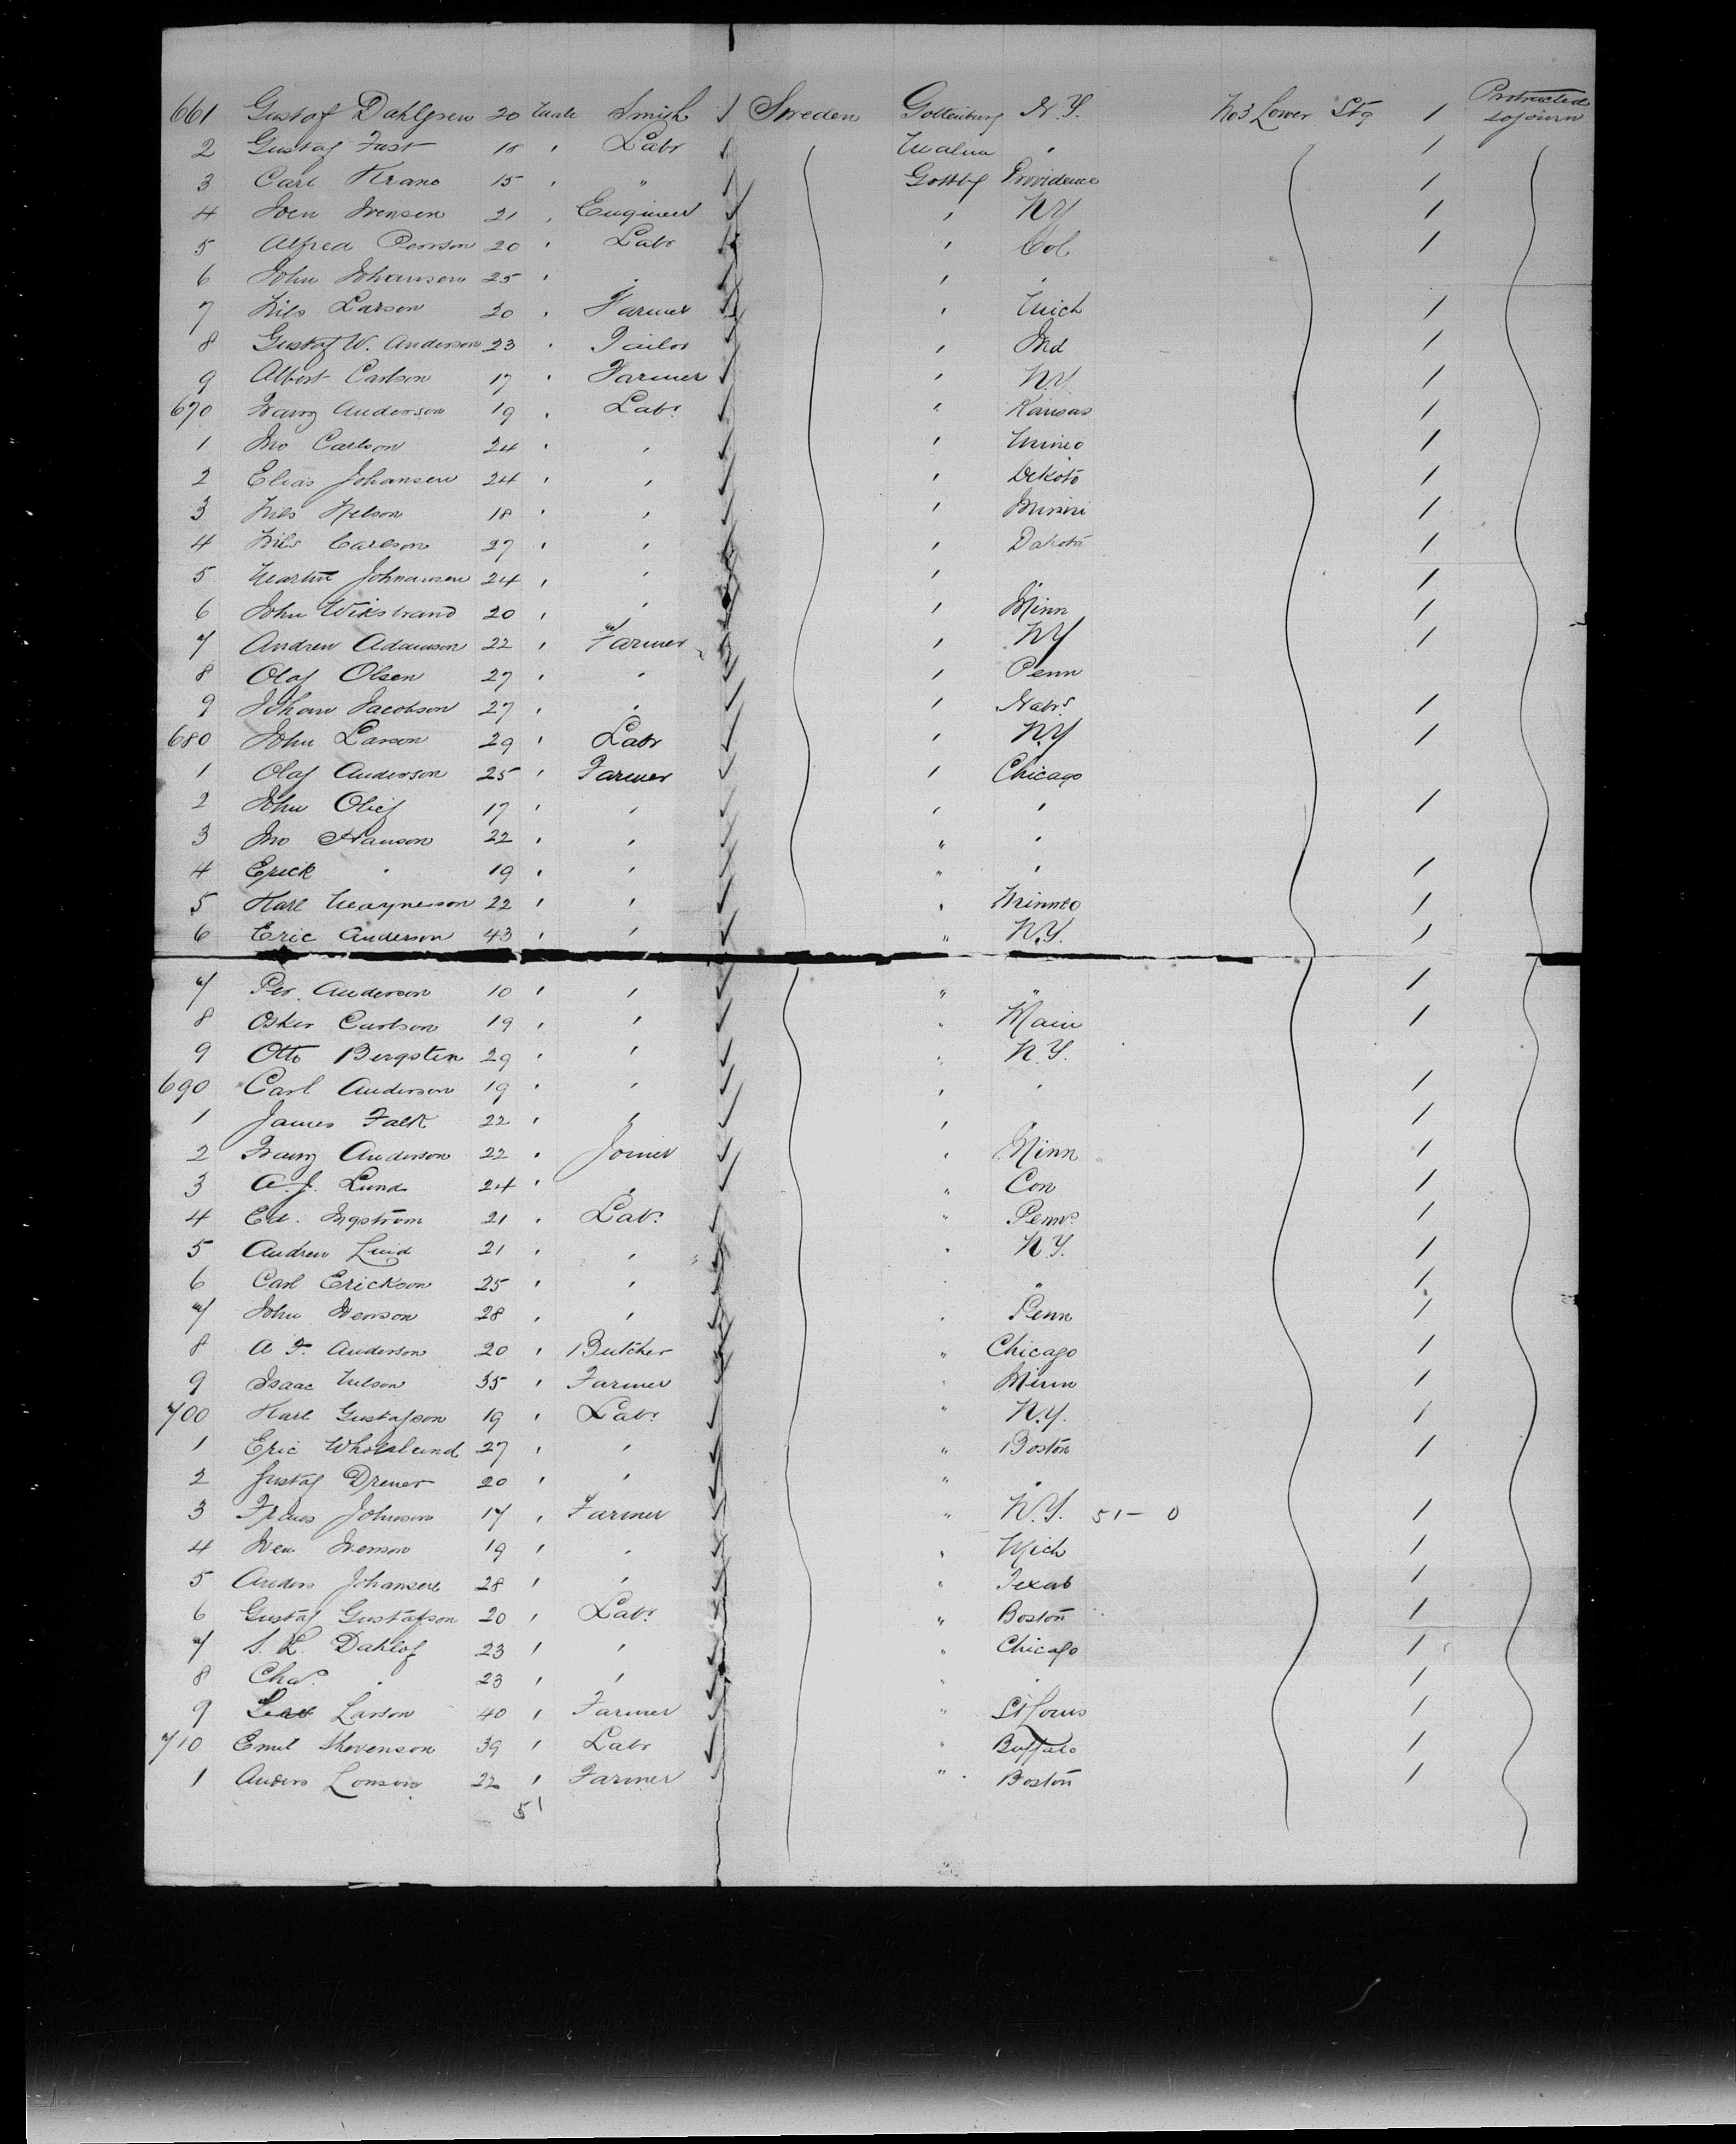 661 Gustaf Dahlgren 20 Male Smith Sweden Gottenburg N.Y. No 3 Lower Stg 1 Protracted sojourn
2 Gustaf Fast 18 " Labr Malma " 1
3 Carl Krans 15 " " Gottbg Providence 1
4 Sven Svensen 21 " Engineer " NY 1
5 Alfred Person 20 " Labr " Col 1
6 John Johansen 25 " " " "
7 Nils Larson 20 " Farmer " Mich 1
8 Gustaf W. Anderson 23 " Tailor " Ind 1
9 Albert Carlson 17 " Farmer " N.Y. 1
670 Franz Anderson 19 " Labr " Kansas 1
1 Jno Carlson 24 " " " 1
2 Elias Johansen 24 " " " Dekota 1
3 Nils Nelson 18 " " " 1
4 Nils Carlson 27 " " " Dakota 1
5 Martin Johnansen 24 " " " " 1
6 John Wikstrand 20 " " " Minn 1
7 Andrew Adamson 22 " Farmer " NY 1
8 Olaf Olsen 27 " " " Penn
9 Johan Jacobson 27 " " " Nabrs 1
680 John Larson 29 " Labr " N.Y 1
1 Olaf Anderson 25 " Farmer " Chicago
2 John Olief 17 " " " " 1
3 Jno Hanson 22 " " " "
4 Erick " 19 " " " " 1
5 Karl Magneson 22 " " " 1
6 Eric Anderson 43 " " " N.Y. 1
7 Per Anderson 10 " " " " 1
8 Osker Carlson 19 " " " Main 1
9 Otto Bergsten 29 " " " N.Y.
690 Carl Anderson 19 " " " " 1
1 James Falk 22 " " " " 1
2 Franz Anderson 22 " Joiner " Minn 1
3 A. J. Lund 24 " " " Con 1
4 Ed. Ingstrom 21 " Labr " Penn 1
5 Andrew Lind 21 " " " N.Y. 1
6 Carl Erickson 25 " " " " 1
7 John Svenson 28 " " " Penn 1
8 A F. Anderson 20 " Butcher " Chicago 1
9 Isaac Nelson 35 " Farmer " Minn 1
700 Karl Gustafson 19 " Labr " N.Y. 1
1 Eric 27 " " " Boston 1
2 Gustaf Drener 20 " " " "
3 Johnson 17 " Farmer " N.Y. 51 - 0 1
4 Sven Svenson 19 " " " Mich 1
5 Anders Johansen 28 " " " Texas 1
6 Gustaf Gustafson 20 " Labr " Boston 1
7 S. L. Dahlof 23 " " " Chicago 1
8 Chas. " 23 " " " " 1
9 Larson 40 " Farmer " St Louis 1
710 Emil Shevenson 39 " Labr " Buffalo 1
1 Anders Lonson 22 " Farmer " Boston 1
51